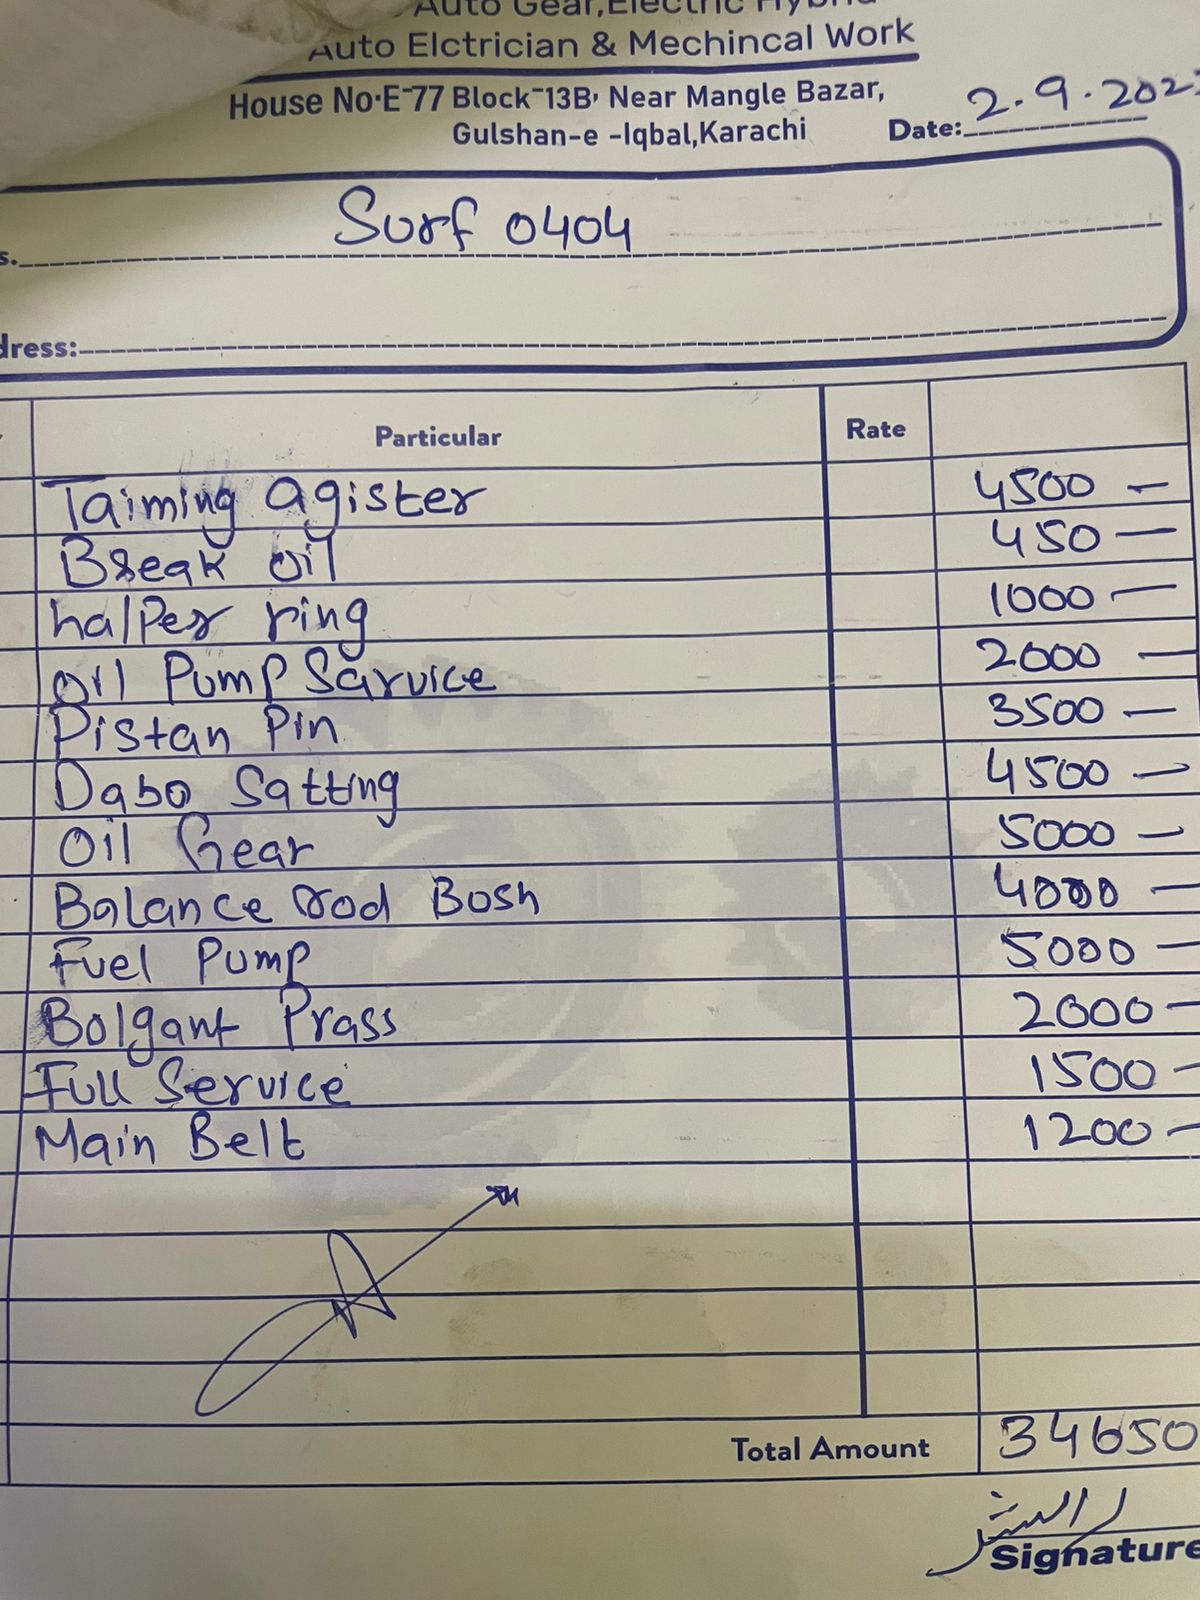 Auto Gear,Electric Hybrid
Auto Elctrician & Mechincal Work
House No·E-77 Block-13B, Near Mangle Bazar,
Gulshan-e -Iqbal,Karachi
Date: 2.9.202
Surf 0404
s.
dress:
Particular Rate
Taiming agister 4500 —
Break oil 450 —
halper ring 1000 —
oil Pump Sarvice 2000 —
Pistan Pin 3500 —
Dabo Satting 4500 —
Oil Gear 5000 —
Balance rod Bosh 4000 —
Fuel Pump 5000 —
Bolgant Prass 2000 -
Full Service 1500 -
Main Belt 1200 -
Total Amount 34650
Signature